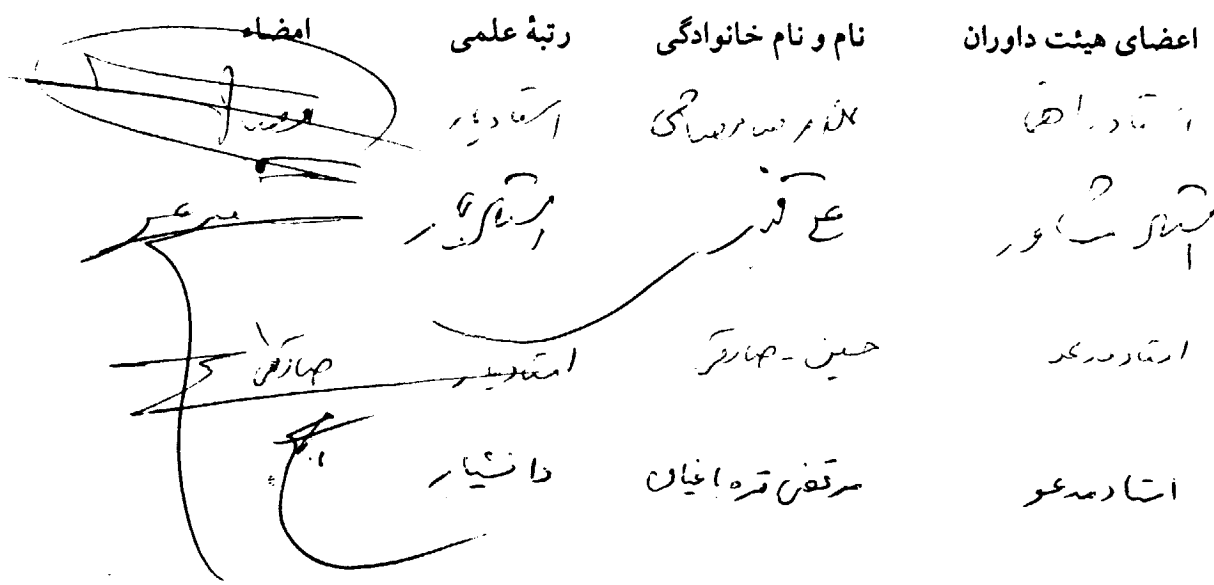 اعضای هیئت داوران نام و نام خانوادگی رتبهٔ علمی امضاء
استاد راهنما استادیار
استاد مشاور استادیار
استاد مدعو حسین صادقی استادیار صادقی
استاد مدعو مرتضی قره باغیان دانشیار